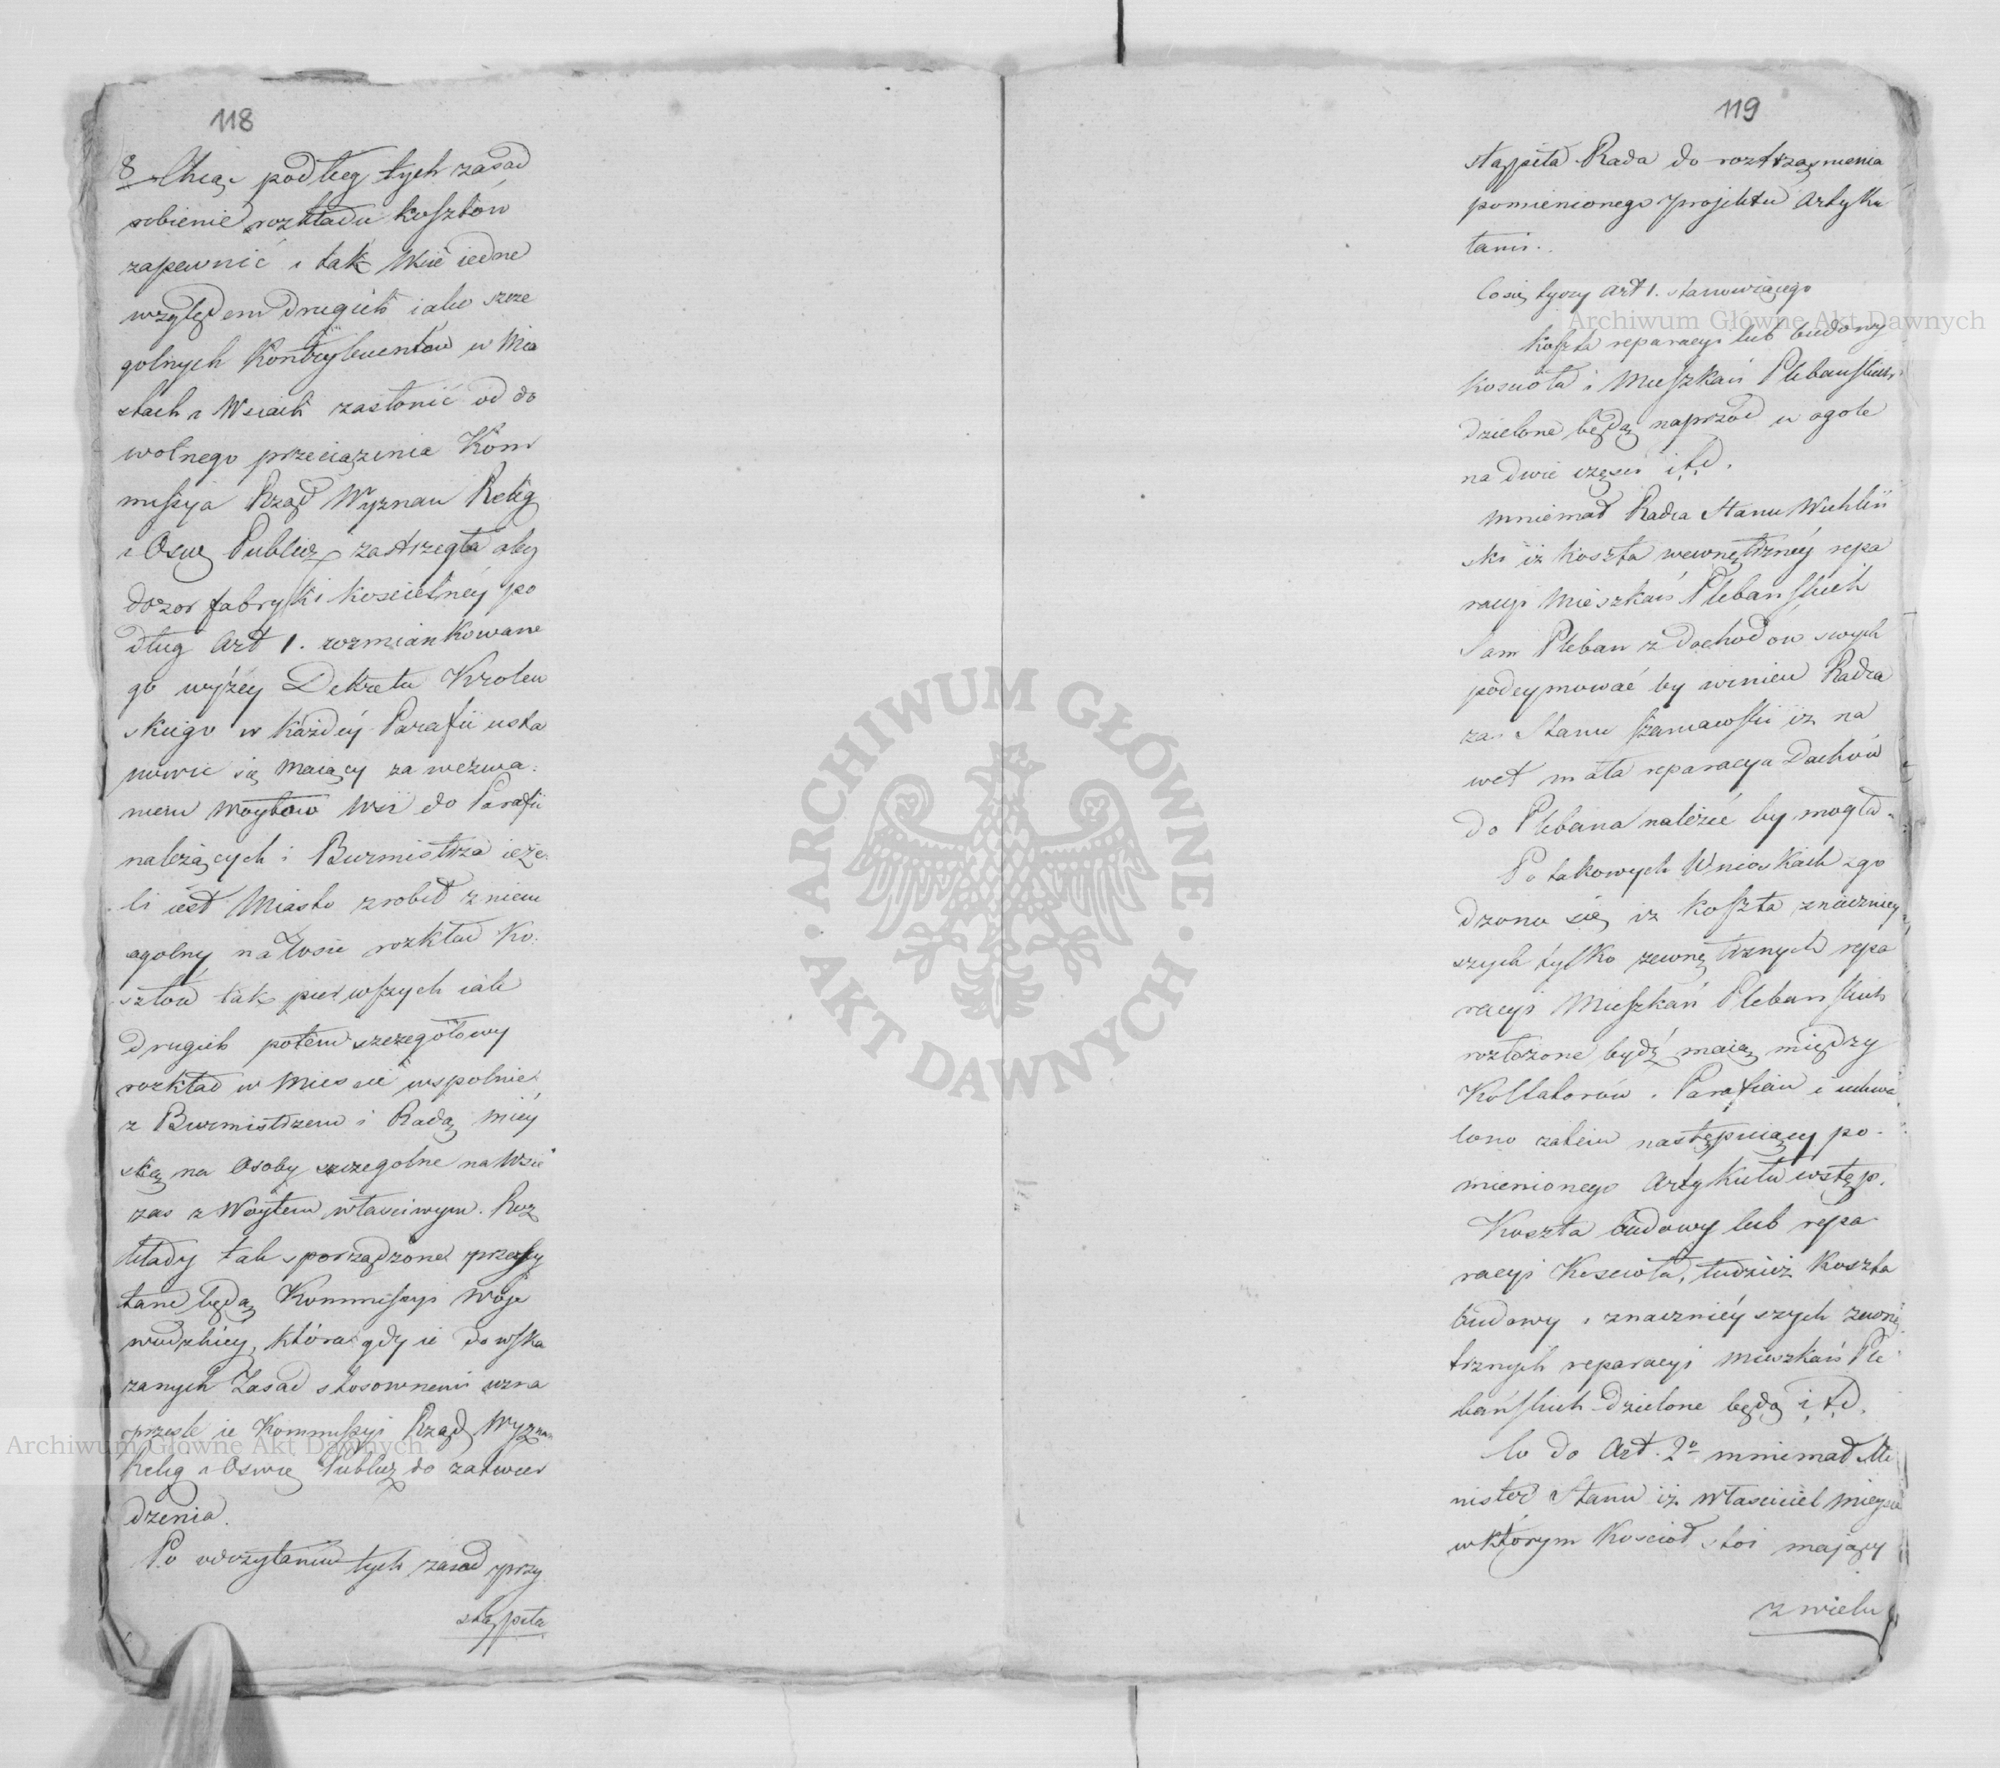 118
8 Chcąc podług tych zasad
robienie rozkładu kosztów
zapewnić i tak Wsie iedne
względem drugich iako szcze
golnych Kontrybuentów w Mia
stach i Wsiach zasłonić od do
wolnego przeciążenia Kom
missyia Rząd Wyznan Relig
i Oswę Publicz zastrzegła aby
dozor fabryki koscielnéy po
dług Art 1. rozmiankowane
go wyżéy Dekretu Krolew
skiego w każdéy Parafii usta
nowic się maiący za wezwa:
niem Woytow Wsi do Parafii
należących i Burmistrza ieże:
li iest Miasto zrobił z niem
ogolny na Wsie rozkład Ko:
sztów tak pierwszych iak
drugich potem szczegołowy
rozkład w Miescie wspolnie
z Burmistrzem i Radą Miey
ską na Osoby szczegolne na Wsie
zas z Woytem własciwym. Roz
kłady tak sporządzone przesy
łane będą Kommissyi Woje
wodzkiéy, która gdy ie do wska
zanych Zasad stosownemi uzna
przesle ie Kommissyi Rząd Wyznan
Relig i Oswie Publicz do zatwier
dzenia.
Po odczytaniu tych zasad przy
stąpiła
119
stąpiła Rada do roztrząsnienia
pomienionego projektu Artyku
łami.
Co się tyczy Art 1. stanowiącego
koszta reparacyi lub budowy
koscioła i Mieszkań Plebanskich
dzielone będą naprzod w ogole
na dwie częsci i t. d.
mniemał Radca Stanu Wichliń
ski iż koszta wewnętrznéy repa
racyi Mieszkań Plebanskich
sam Pleban z dochodow swych
podeymować by winien Radca
zas Stanu Szaniawski iż na
wet mała reparacya Dachów
do Plebana należeć by mogła.
Po takowych Wnioskach zgo
dzono się iż koszta znaczniey
szych tylko zewnętrznych repa
racyi Mieszkań Plebanskich
rozłożone bydź maią między
Kollatorów i Parafian i uchwa
lono zatem następuiący po-
mienionego Artykułu wstęp.
Koszta budowy lub repa-
racyi Koscioła, tudzież koszta
budowy i znaczniéyszych zewnę
trznych reparacyi mieszkań Ple
bańskich dzielone będą i t. d.
Co do Art. 2º mniemał Mi
nister Stanu iż własciciel mieysca
w którym Kosciol stoi mający
z wielu
ARCHIWUM GŁÓWNE AKT DAWNYCH
Archiwum Główne Akt Dawnych
Archiwum Główne Akt Dawnych